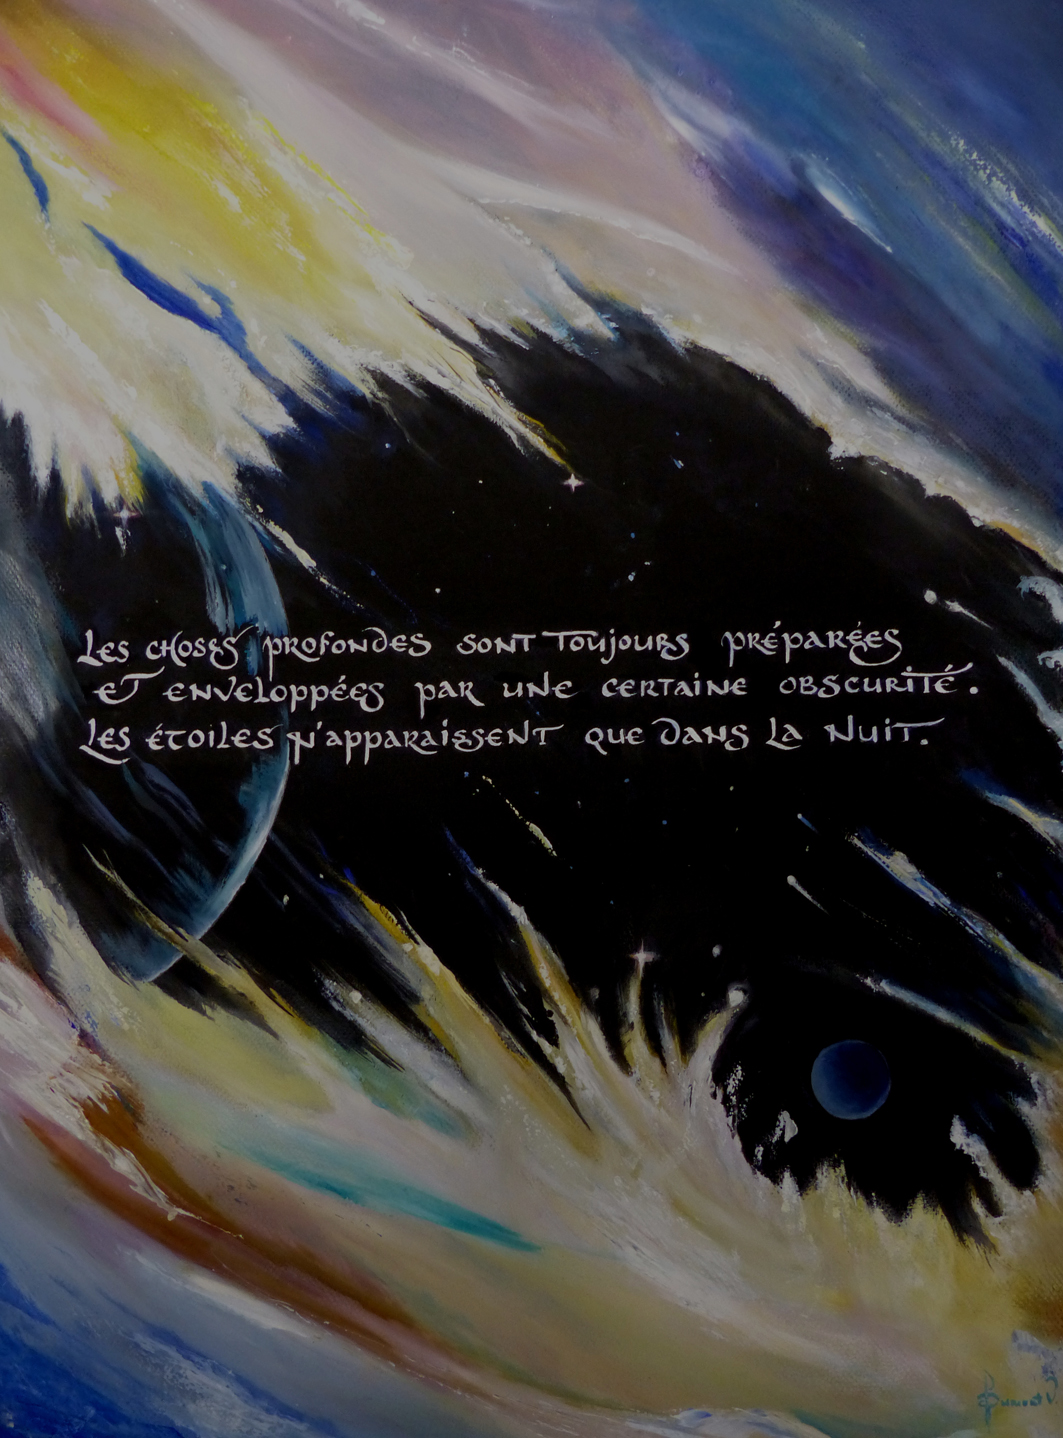 Les choses profondes sont toujours préparées
et enveloppées par une certaine obscurité.
Les étoiles n'apparaissent que dans la Nuit.